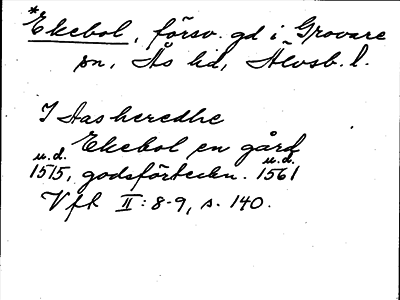 *Ekebol, försv. gd i Grovare
sn, Ås hd, Älvsb. l.
I Aas heredhe
Ekebol en gård
u.d. u.d.
1515, godsförteckn. 1561
Vft II: 8-9, s. 140.